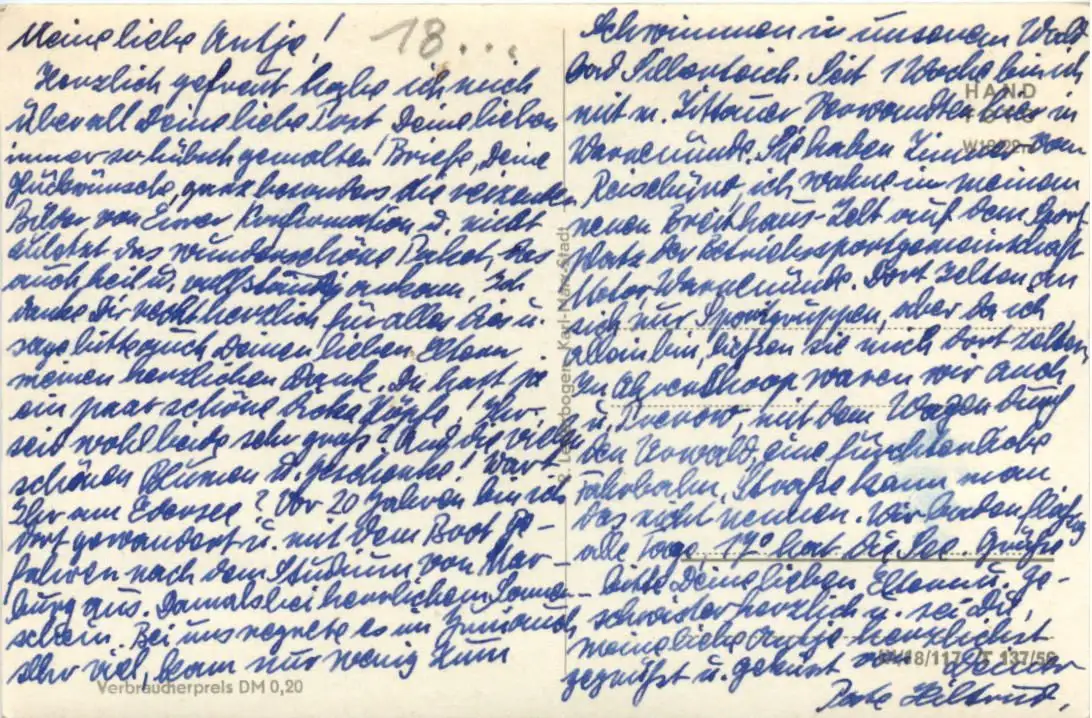 Meine liche Antje! 18...
Herzlich gefreut habe ich mich
über all Deine liebe Post Deine lieben
immer so hübsch gemalten Briefe, Deine
Glückwünsche, ganz besonders die reizenden
Bilder von Eurer Konfirmation u. nicht
zuletzt das wunderschöne Paket, das
auch heil u. vollständig ankam. Ich
danke Dir recht herzlich für alles dies u.
sage bitte auch Deinen lieben Eltern
meinen herzlichen Dank. Du hast ja
ein paar schöne dicke Zöpfe! Ihr
seit wohl beide sehr groß? Und die vielen
schönen Blumen u. Geschenke! Wart
Ihr am Edersee? Vor 20 Jahren bin ich
dort gewandert u. mit dem Boot ge-
fahren nach dem Studium von Mar-
burg aus. Damals bei herrlichem Sonnen-
schein. Bei uns regnete es im Juni auch
sehr viel, kam nur wenig zum
Verbraucherpreis DM 0,20
Karl-Marx-Stadt
Schwimmen in unserem Wald-
bad Silberteich. Seit 1 Woche bin ich
HAND
mit m. Zittauer Verwandten hier in
Warnemünde. Sie haben Zimmer vom
Reisebüro, ich wohne in meinem
neuen Breithaus-Zelt auf dem Sport-
platz der Betriebssportgemeinschaft
Motor Warnemünde. Dort zelten an
sich nur Sportgruppen, aber da ich
allein bin, ließen sie mich dort zelten.
In Ahrenshoop waren wir auch
u. Prerow, mit dem Wagen durch
den Urwald, eine fürchterliche
Fahrbahn, Straße kann man
das nicht nennen. Wir baden fleißig
alle Tage, 17° hat die See. Grüße
bitte Deine lieben Eltern u. Ge-
schwister herzlich u. sei Du,
meine liebe Antje herzlichst
gegrüßt u. geküßt von Deiner
18/117 137/56
Pate Hiltrud.